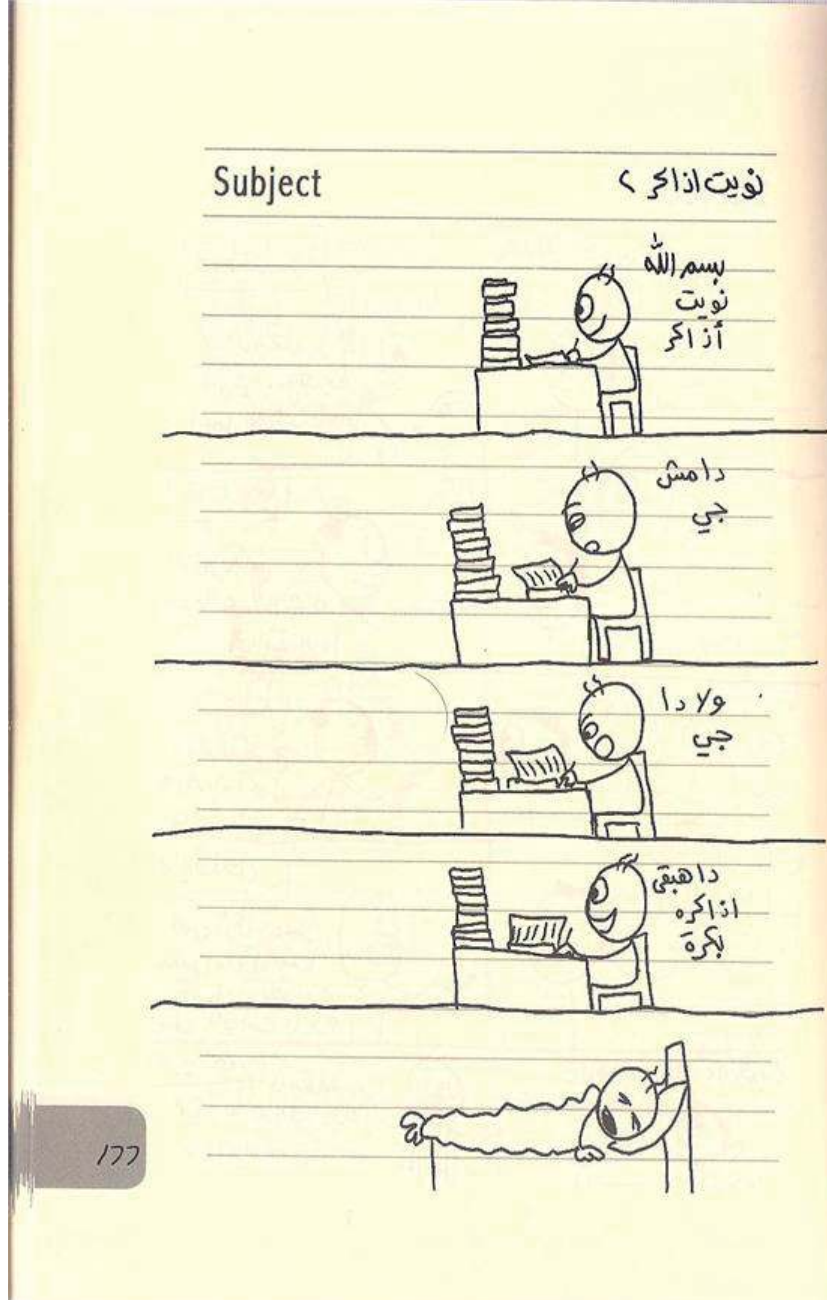 Subject
نويت اذاكر ٢
بسم الله
نويت
أذاكر
دا مش
جي
ولا دا
جي
دا هبقى
اذاكره
بكرة
١٢٢